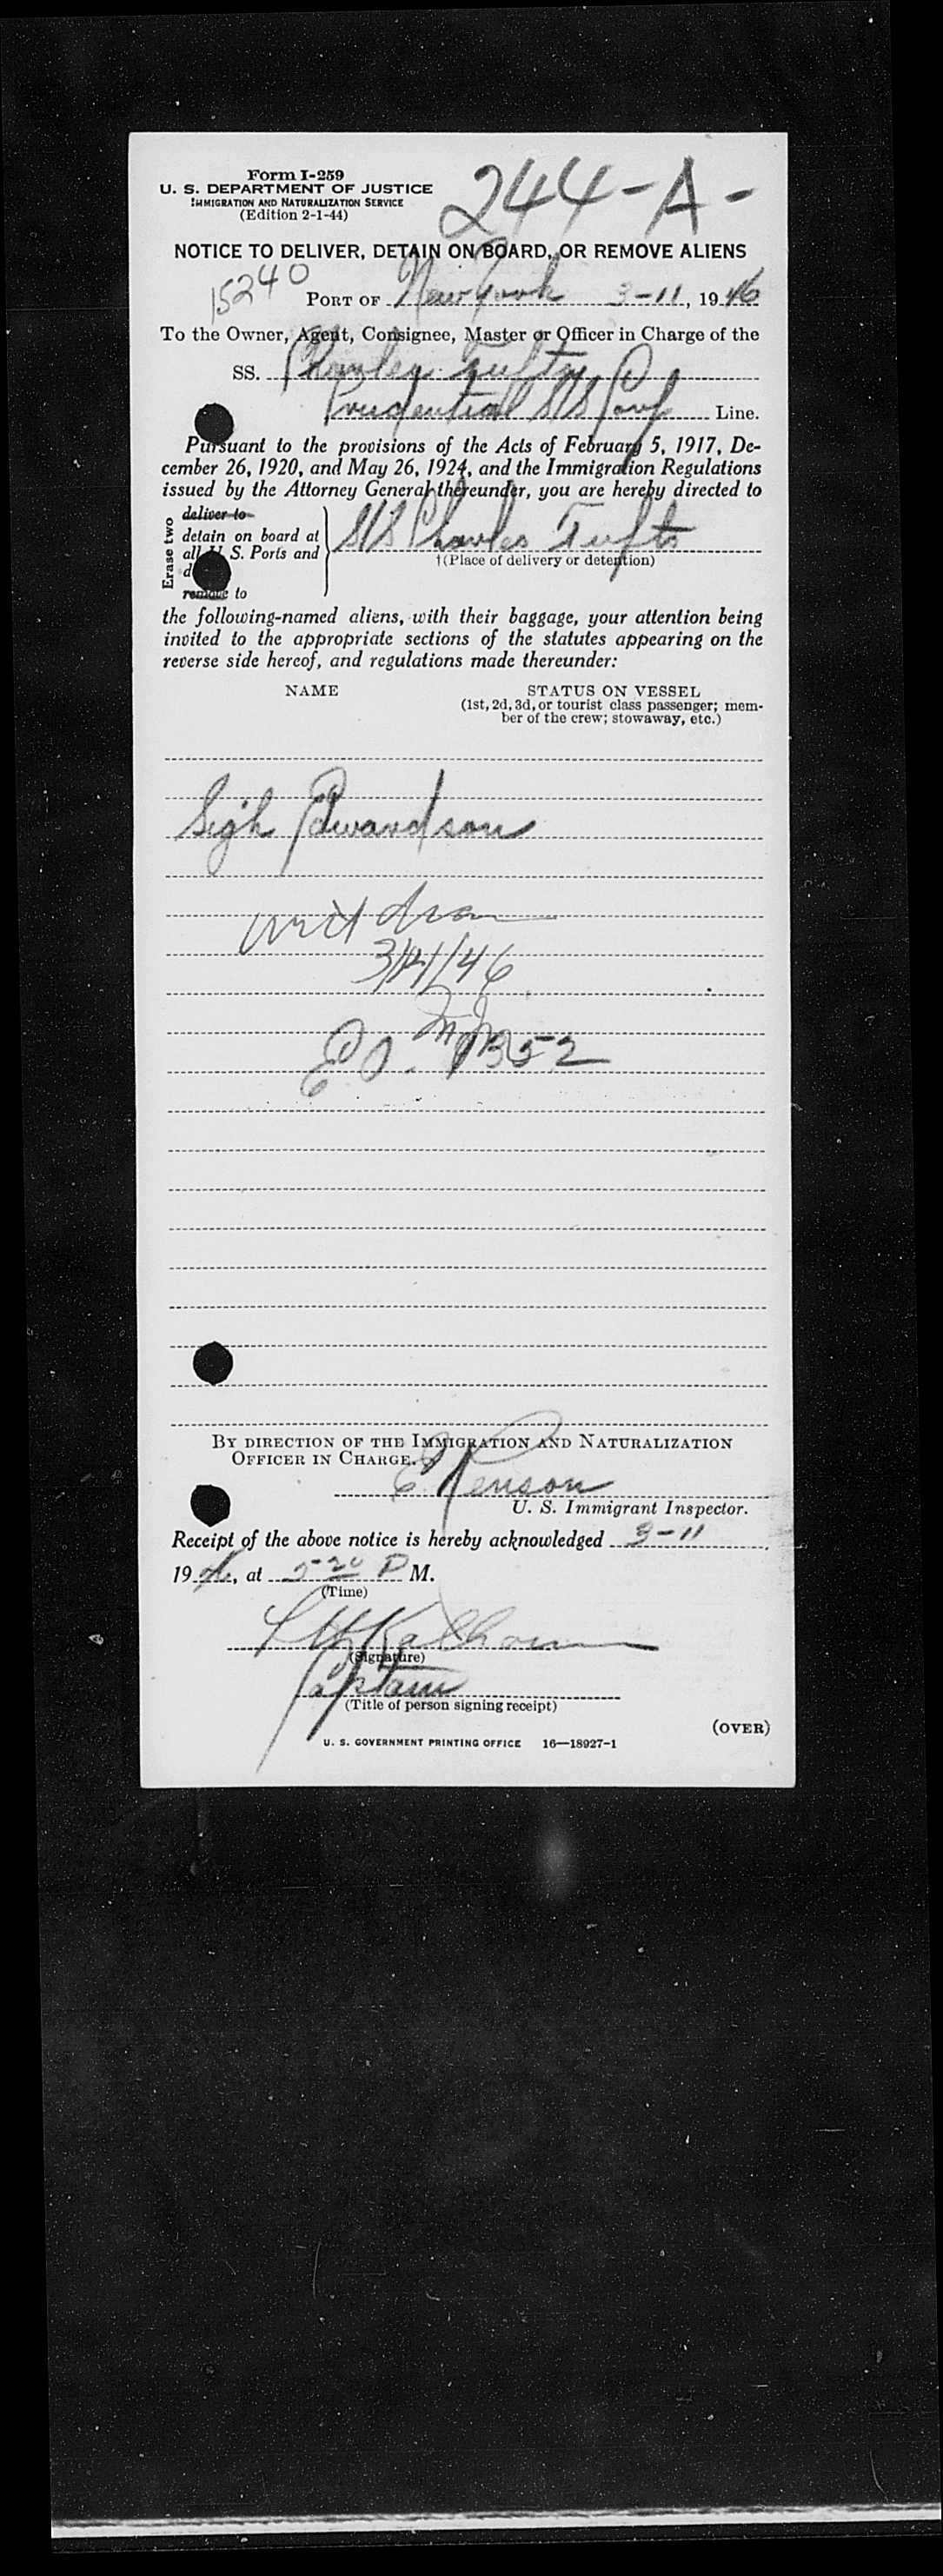 Form I-259
U. S. DEPARTMENT OF JUSTICE
IMMIGRATION AND NATURALIZATION SERVICE
(Edition 2-1-44)
244-A-
NOTICE TO DELIVER, DETAIN ON BOARD, OR REMOVE ALIENS
15240
PORT OF New York 3-11, 1946
To the Owner, Agent, Consignee, Master or Officer in Charge of the
SS. Charles Tufts
Prudential S/S Corp Line.
Pursuant to the provisions of the Acts of February 5, 1917, De-
cember 26, 1920, and May 26, 1924, and the Immigration Regulations
issued by the Attorney General thereunder, you are hereby directed to
Erase two
deliver to
detain on board at
all U. S. Ports and
remove to
S/S Charles Tufts
†(Place of delivery or detention)
the following-named aliens, with their baggage, your attention being
invited to the appropriate sections of the statutes appearing on the
reverse side hereof, and regulations made thereunder:
NAME
STATUS ON VESSEL
(1st, 2d, 3d, or tourist class passenger; mem-
ber of the crew; stowaway, etc.)
Sigh Edwardson
3/14/46
E.O. 9352
BY DIRECTION OF THE IMMIGRATION AND NATURALIZATION
OFFICER IN CHARGE.
U. S. Immigrant Inspector.
Receipt of the above notice is hereby acknowledged 3-11
1946, at 5 20 P M.
(Time)
(Signature)
Captain
(Title of person signing receipt)
(OVER)
U. S. GOVERNMENT PRINTING OFFICE 16—18927-1